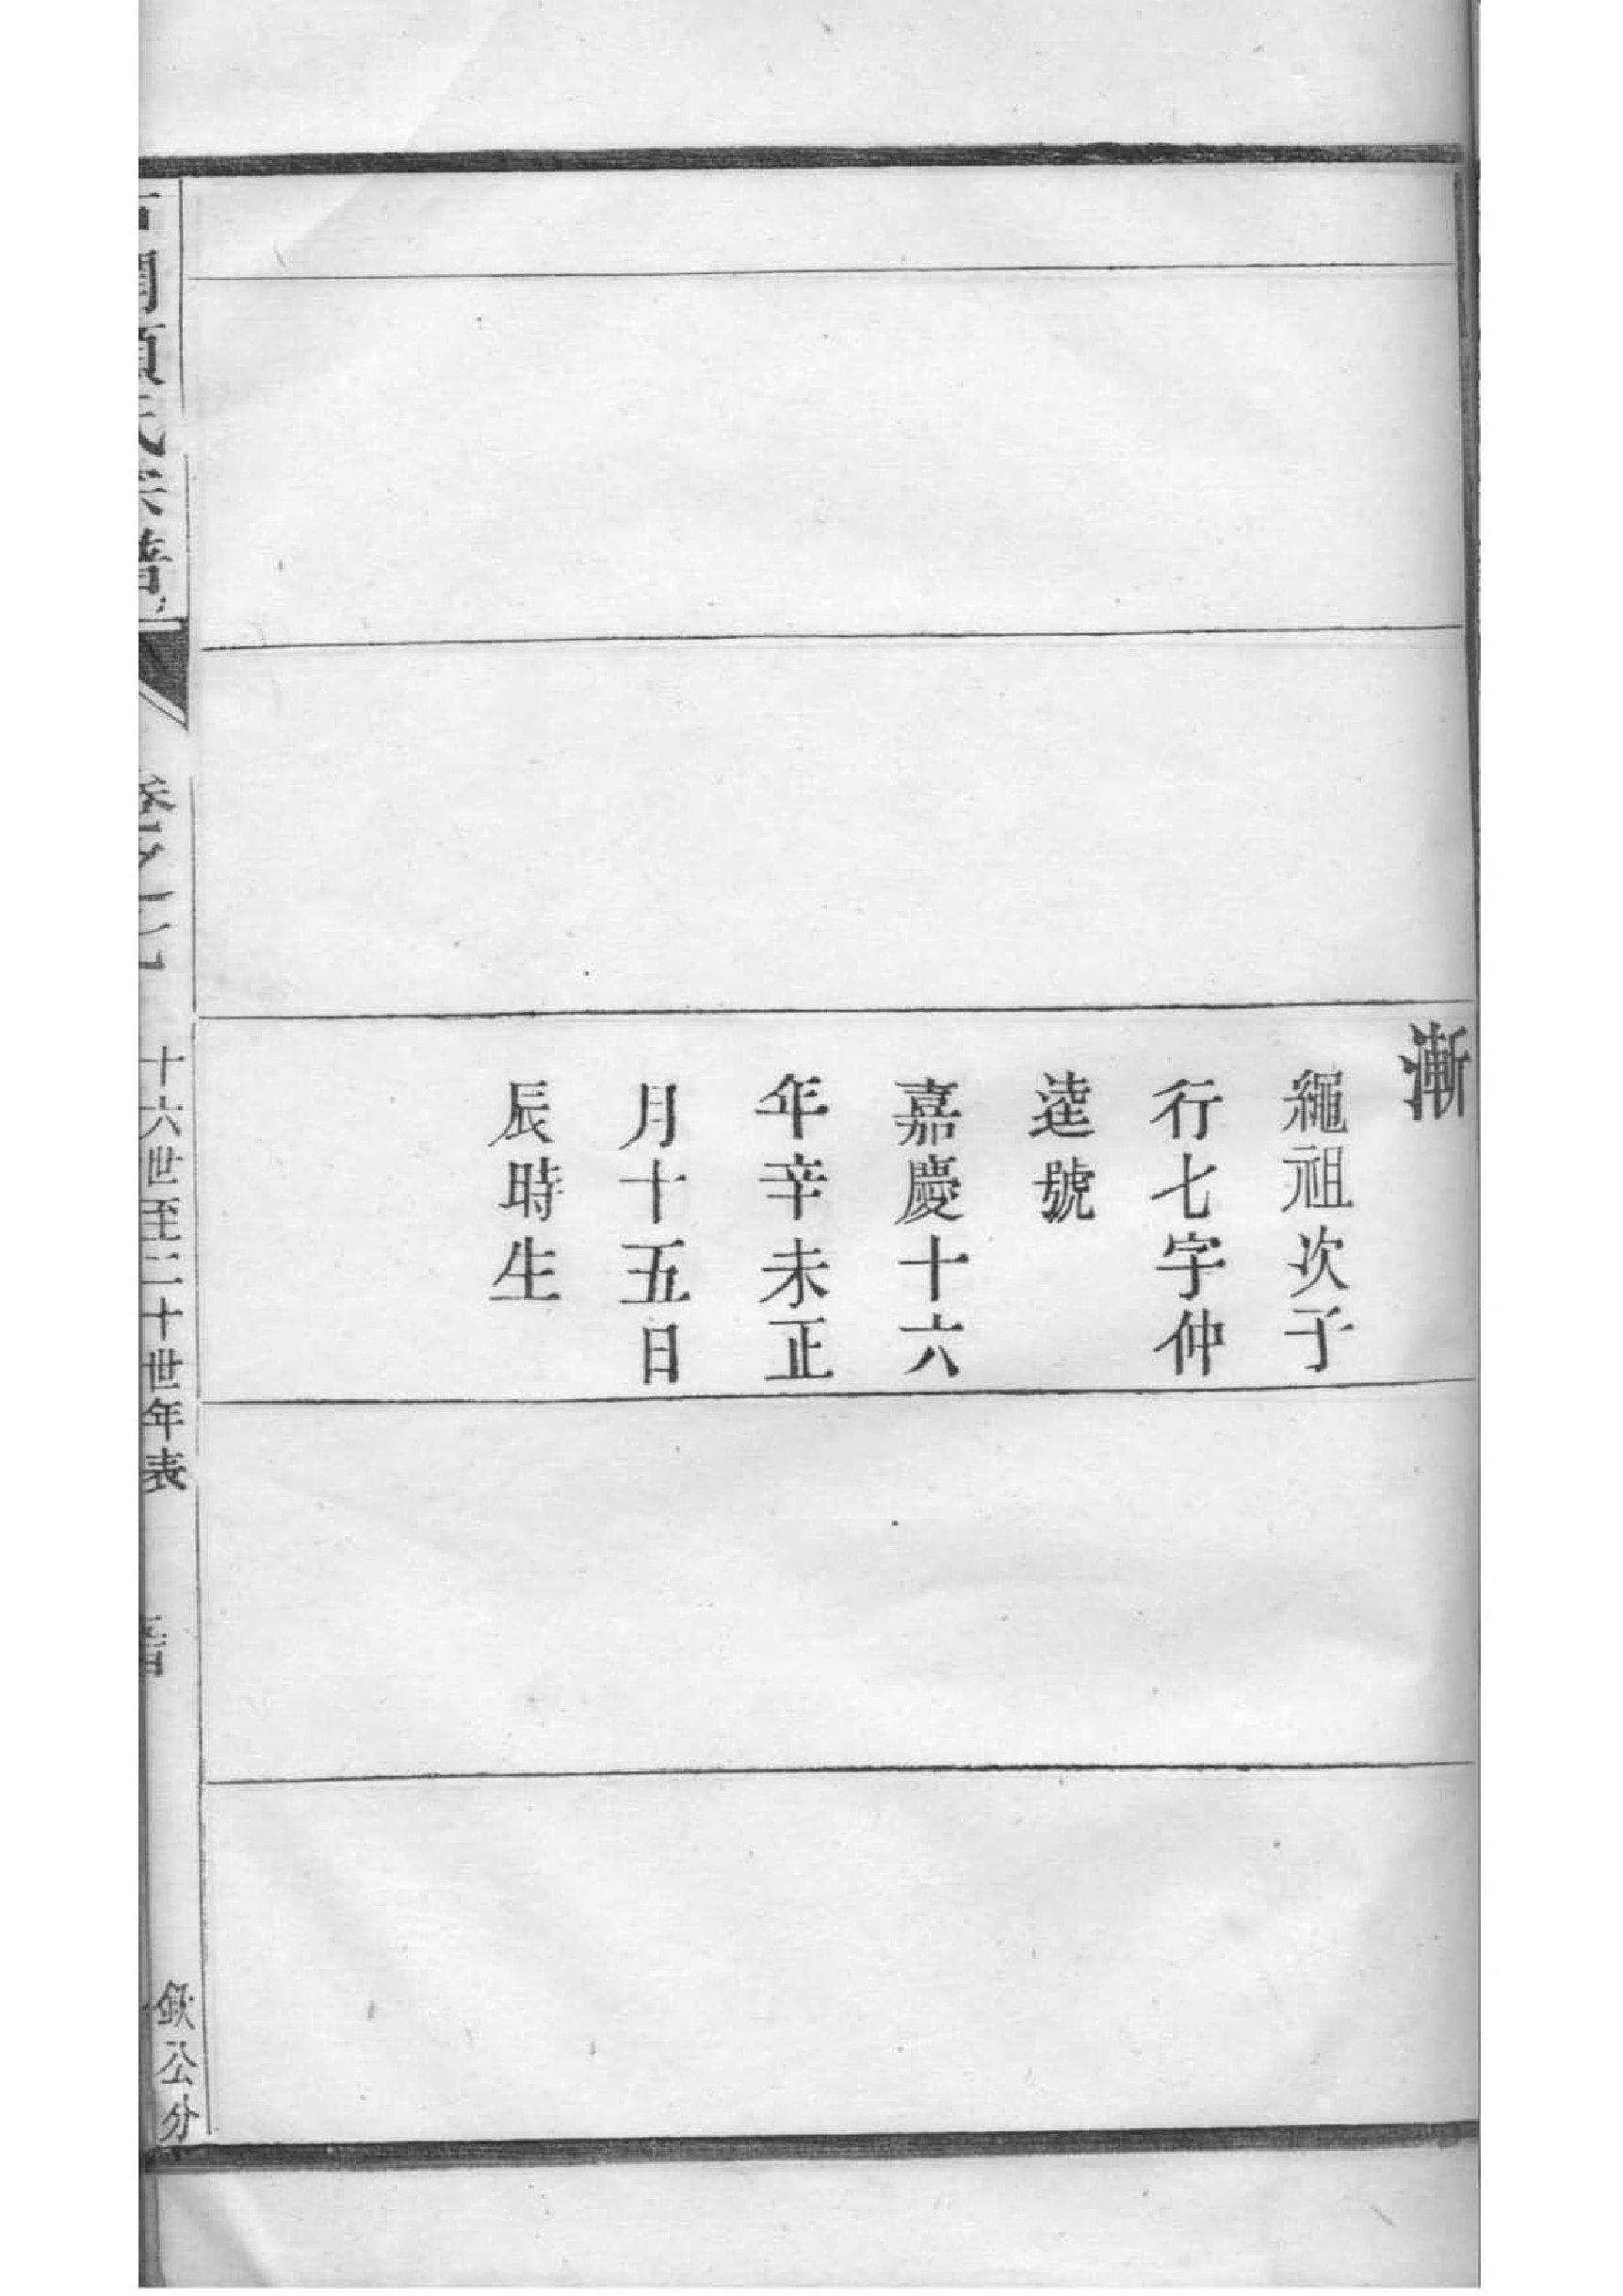 漸
繩祖次子
行七字仲
逵號
嘉慶十六
年辛未正
月十五日
辰時生
十六世至二十世年表
欽公分